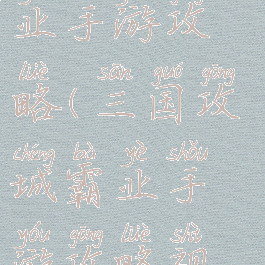 业手游攻
lüè sān guó gōng
略(三国攻
chéng bà yè shǒu
城霸业手
yóu gōng lüè shì
游攻略视